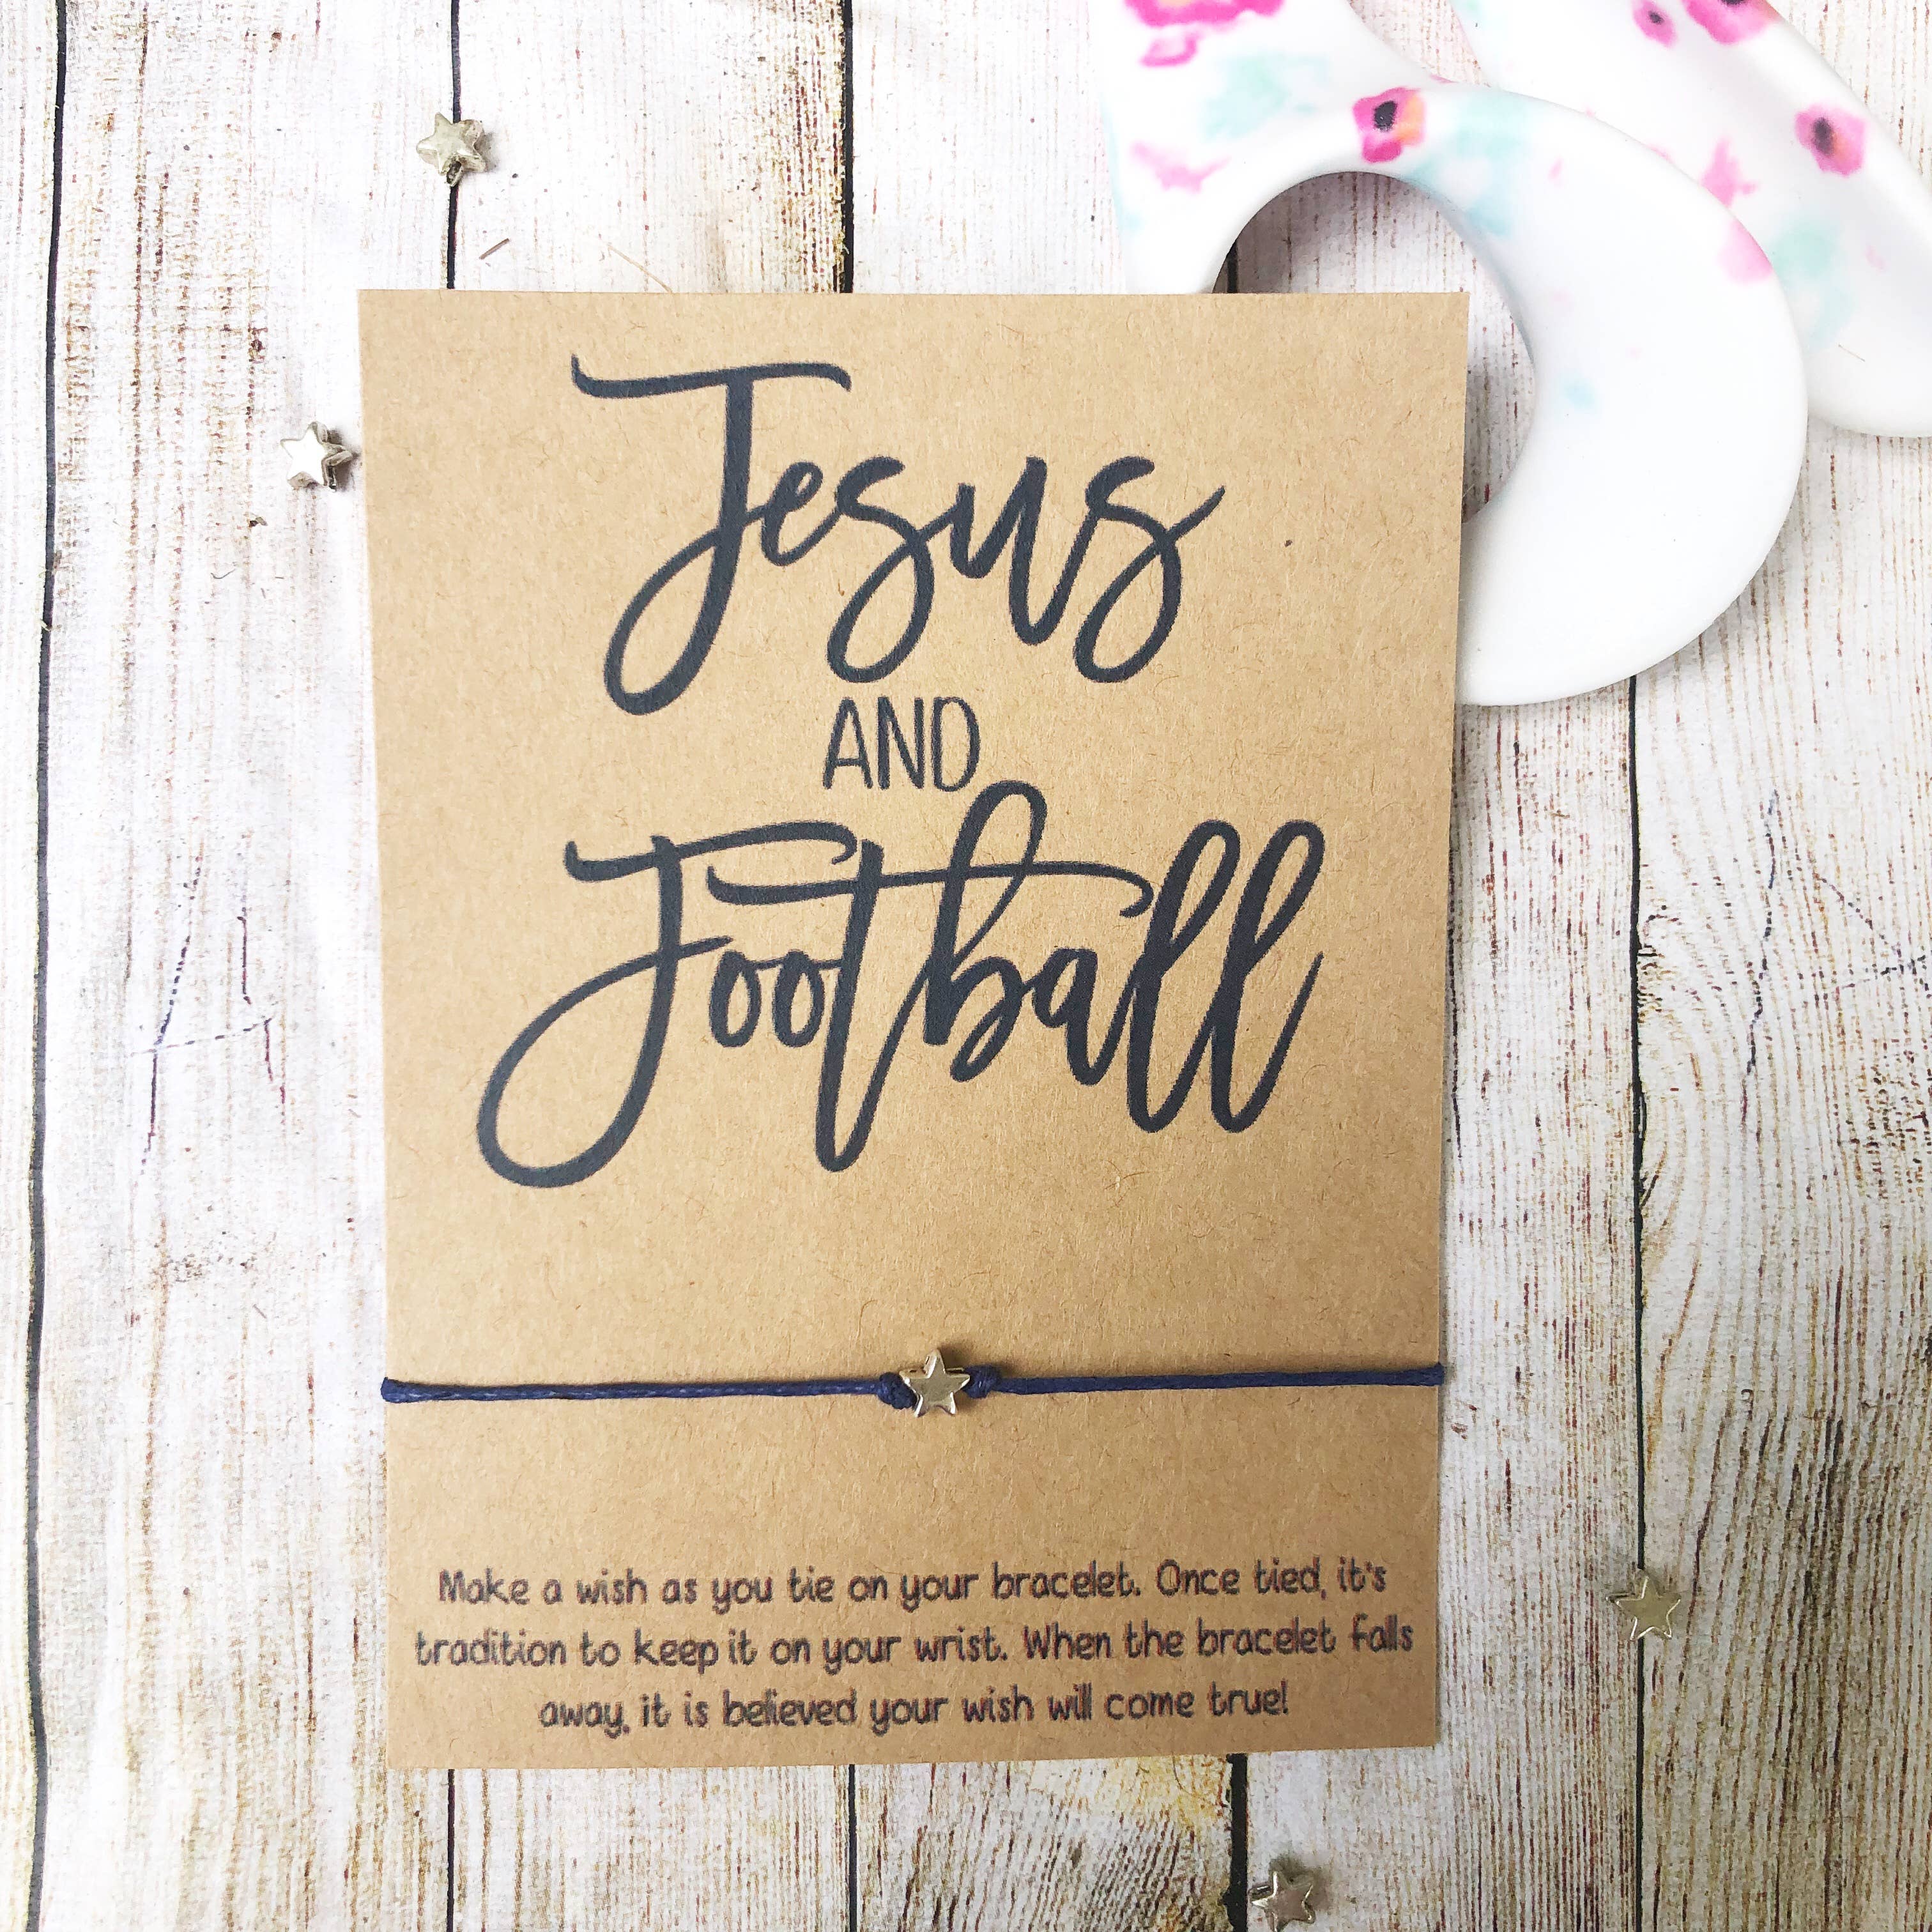 Jesus
AND
Football
Make a wish as you tie on your bracelet. Once tied, it's
tradition to keep it on your wrist. When the bracelet falls
away, it is believed your wish will come true!